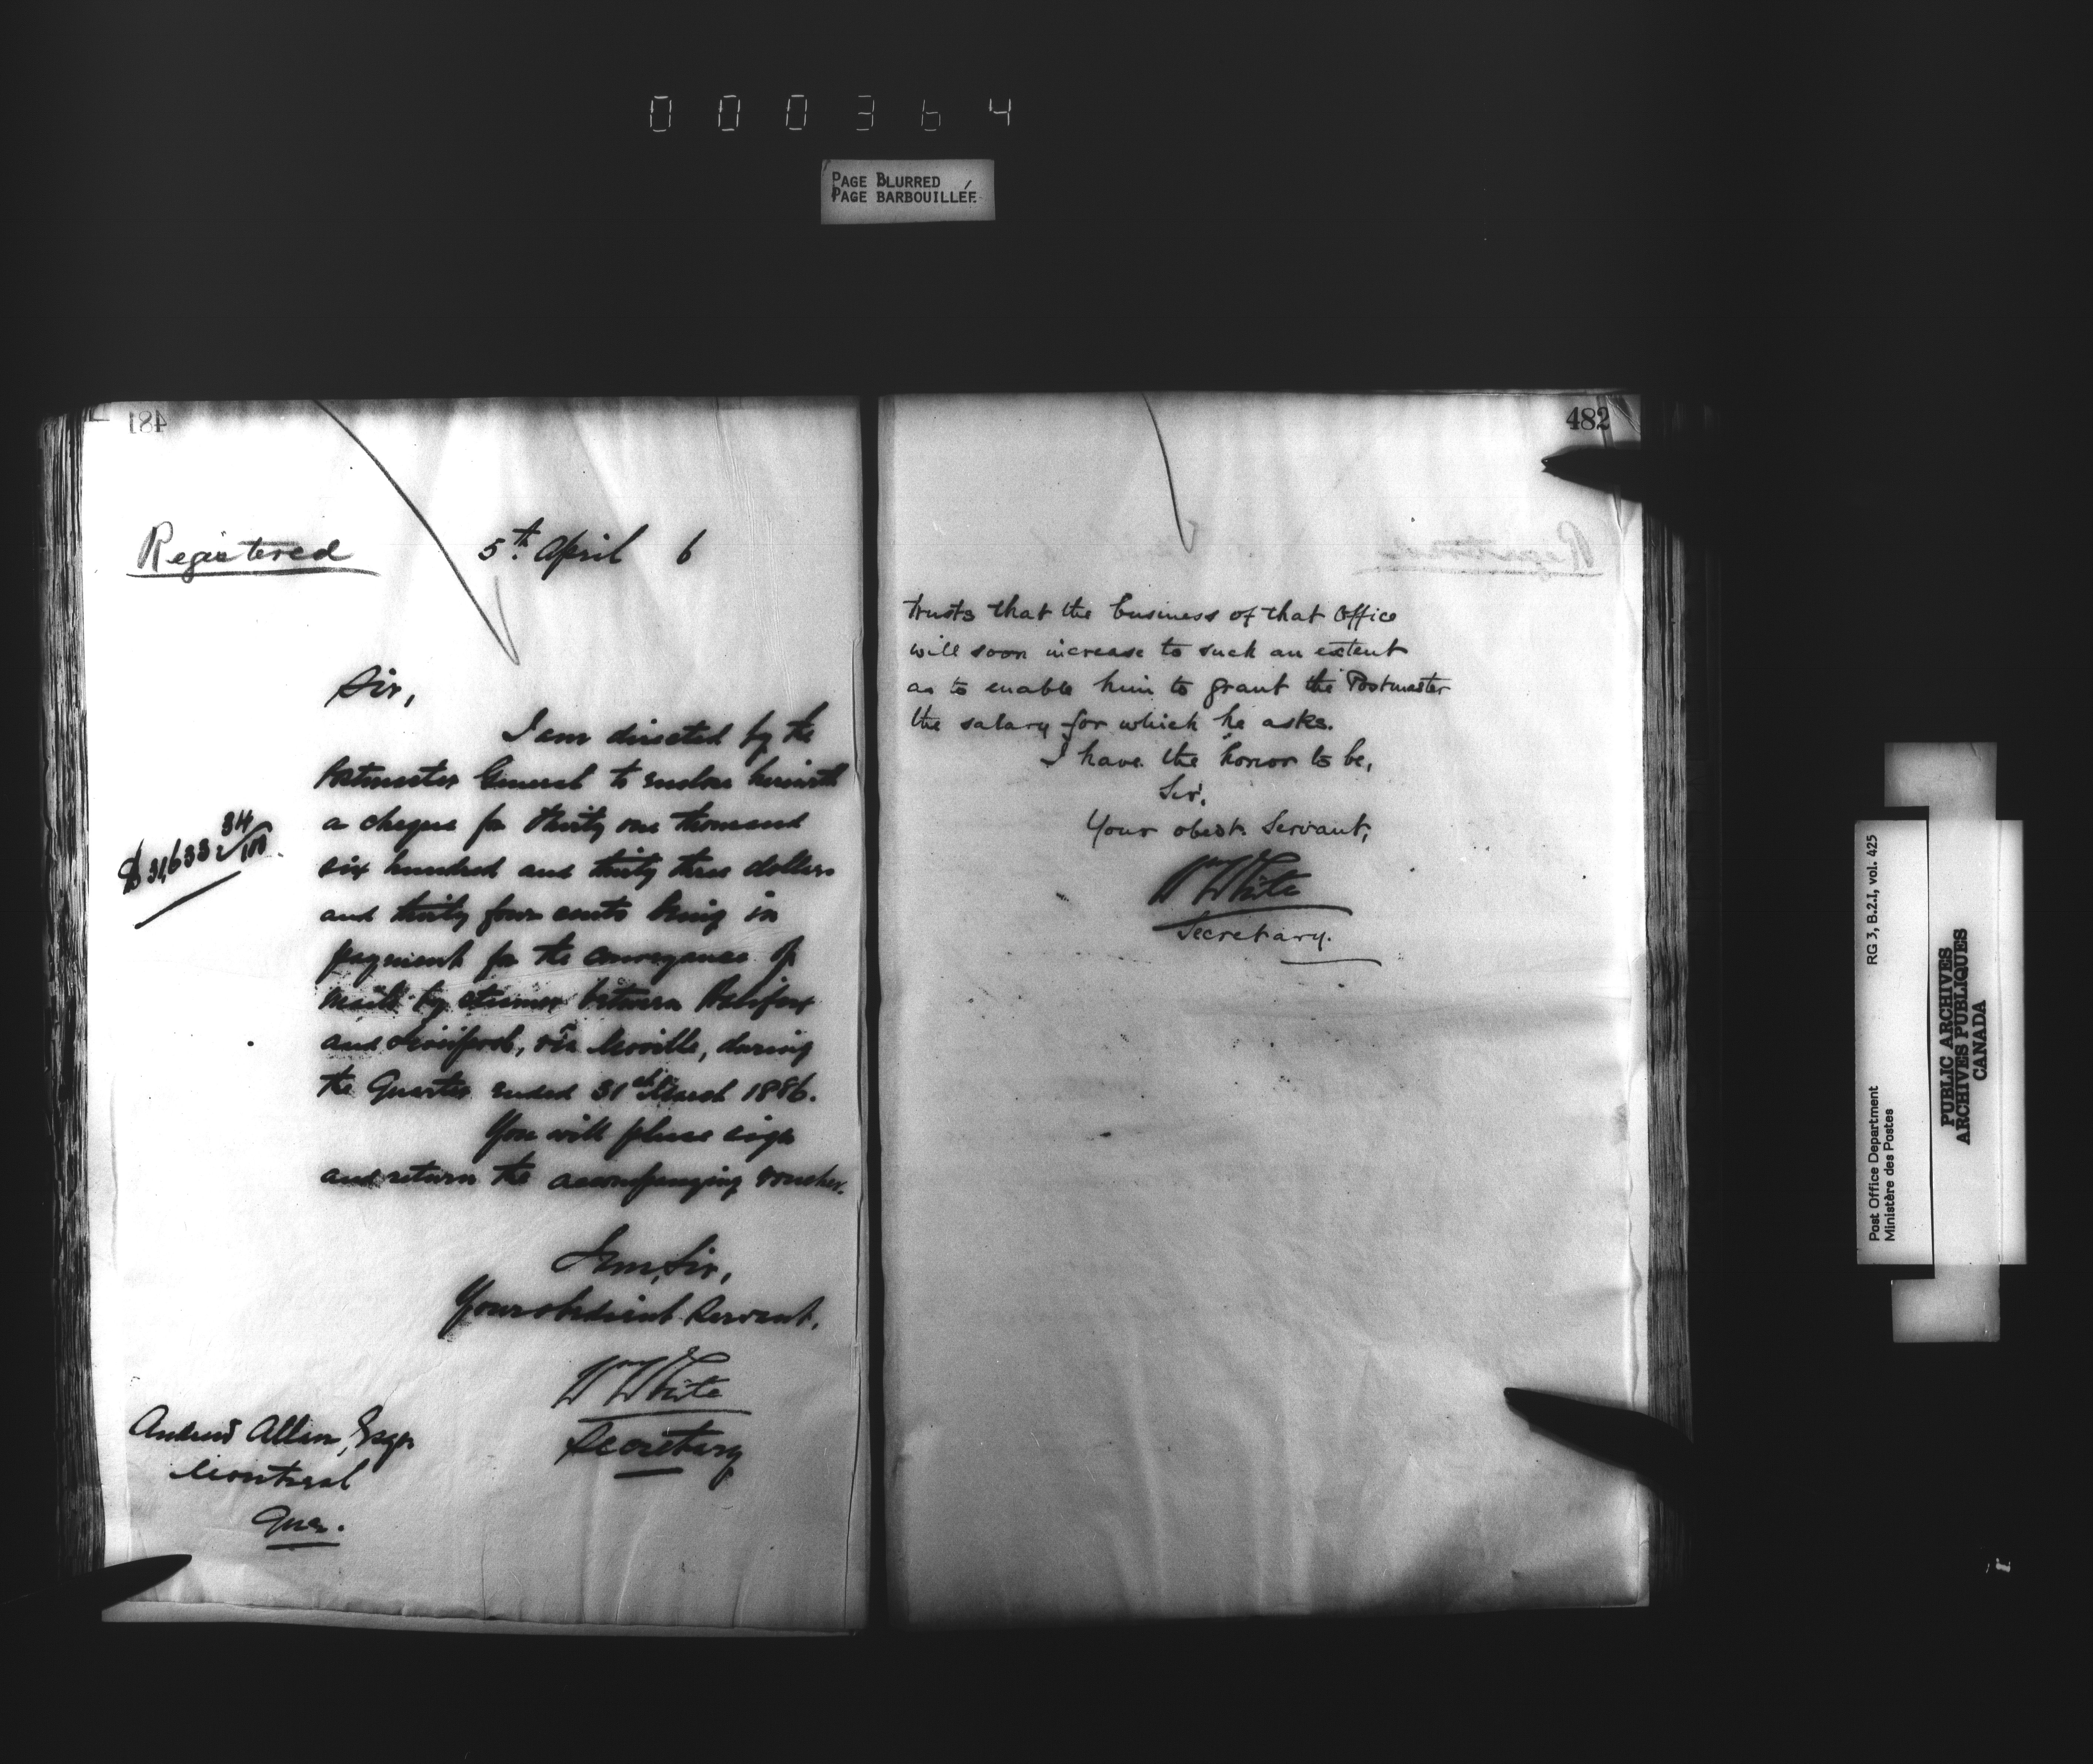 000364
PAGE BLURRED
PAGE BARBOUILLÉE
481
Registered
5th. April 6
Sir,
I am directed by the
Postmaster General to enclose herewith
a cheque for thirty one thousand
$31,633 34/100.
six hundred and thirty three dollars
and thirty four cents being in
payment for the conveyance of
mails by steamer between Halifax
and Liverpool, via Moville, during
the Quarter ended 31st March 1886.
You will please sign
and return the accompanying voucher.
I am, Sir,
Your obedient Servant,
Wm White
Secretary
Andrew Allan, Esqr
Montreal
Que.
482
trusts that the business of that Office
will soon increase to such an extent
as to enable him to grant the Postmaster
the salary for which he asks.
I have the honor to be,
Sir,
Your obedt. Servant,
Wm White
Secretary.
RG 3, B.2.I, vol. 425
Post Office Department
Ministère des Postes
PUBLIC ARCHIVES
ARCHIVES PUBLIQUES
CANADA